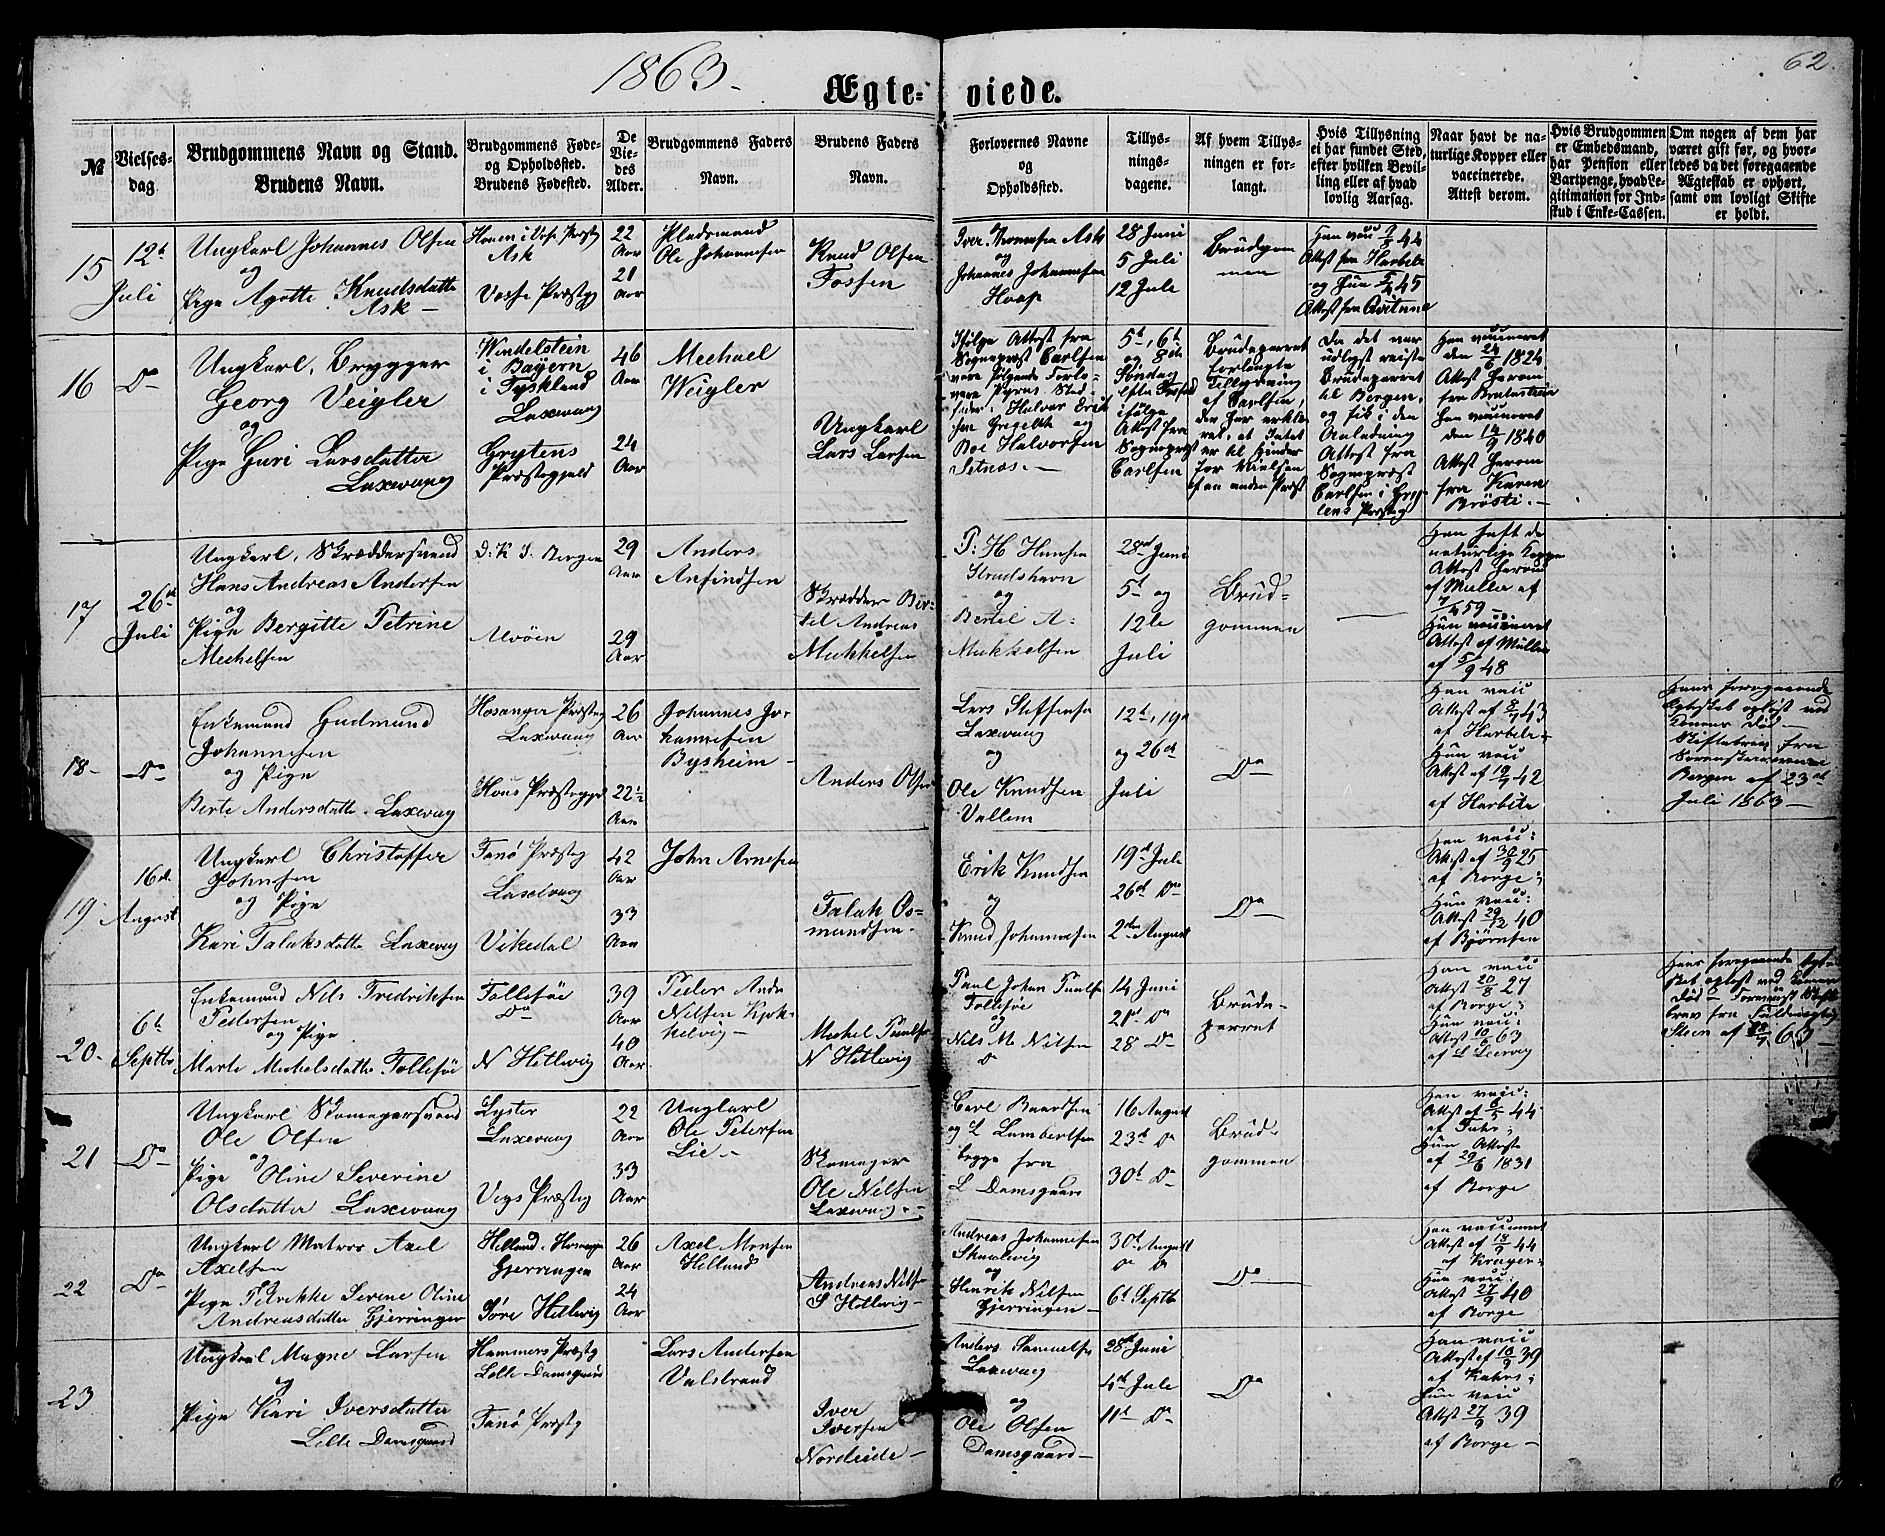 1863.
62.
Ægte-viede.
№
Vielses-
dag.
Brudgommens Navn og Stand.
Brudens Navn.
Brudgommens Føde-
og Opholdssted.
Brudens Fødested.
De
Vie-
des
Alder.
Brudgommens Faders
Navn.
Brudens Faders
Navn.
Forlovernes Navne
og
Opholdssted.
Tillys-
nings-
dagene.
Af hvem Tillys-
ningen er for-
langt.
Hvis Tillysning
ei har fundet Sted,
efter hvilken Bevil-
ling eller af hvad
lovlig Aarsag.
Naar havt de na-
turlige Kopper eller
vaccinerede.
Attest derom.
Hvis Brudgommen
er Embedsmand,
har Pension eller
Vartpenge, hvad Le-
gitimation for Ind-
skud i Enke-Cassen.
Om nogen af dem har
været gift før, og hvor-
ledes da det foregaaende
Ægteskab er ophørt,
samt om lovligt Skifte
er holdt.
15
12te
Juli
Ungkarl Johannes Olsen
og
Pige Agotte Knudsdatter
Ask
Ask
Vosse Præstg
22
Aar
21
Aar
Ole Johannesen
Knud Olsen
Fossen
Iver Thomasen Ask
og
Johannes Johannesen
28 Juni
5 Juli
12 Juli
Brudgom
men
Attest fra Harbitz
og Hun 5/4 45
16
Do
Ungkarl, Brygger
Georg Veigler
og
Pige Guri Larsdatter
Laxevaag
Wendelstein
i Bayern
i Tyskland
Laxevaag
Grytens
Præstegjeld
46
Aar
24
Aar
Mechael
Weigler
Ungkarl
Lars Larsen
Ifølge Attest fra
Sognepræst Carlsen
vare følgende Forlo-
vere
Halvor Erik
sen
og
Boe Halvorsen
Setnæs.
5te, 6te
og 8de
Søndag
ifølge
Attest fra
Sognepræst
Carlsen
Brudeparret
forlangte
Tillysning
af Carlsen,
for Vielsen
af en anden Præst
Da det var
udlyst reiste
Brudeparret
til Bergen,
og fik i den
Anledning
Attest fra
Sognepræst
Carlsen i Gry-
tens Præstg
Han vaccineret
den 24/6 1824
Attest herom
Hun vaccineret
den 14/9 1840
Attest herom
fra Karen
Brøste.
17
26de
Juli
Ungkarl, Skræddersvend
Hans Andreas Andersen
og
Pige Bergitte Petrine
Mechelsen
D. K. S. Bergen
Alvøen
29
Aar
29
Aar
Anders
Anfindsen
Skrædder Ber-
tel Andreas
Mikkelsen
P: H Hansen
Strudshavn
og
Bertel A:
Mikkelsen
28de Juni
5te og
12te
Juli
Brud-
gommen
Han haft de
naturlige Kopper
Attest herom
af Müller af
7/4 59
Hun vaccineret
Attest af Müller
af 5/9 48
18
Do
Enkemand Gudmund
Johannesen
og Pige
Berte Andersdatter Laxevaag
Hosanger Præstg
Laxevaag
Hous Præstegjd
26
Aar
22½
Aar
Johannes Jo-
hannesen
Bysheim
Anders Olsen
Lars Steffensen
Laxevaag
og
Ole Knudsen
Vallem
12te, 19de
og 26de
Juli
Do
Han vacc
Attest af 8/7 43
af Harbitz
Hun vacc
Attest af 19/7 42
af Harbitz
Hans foregaaende
Ægteskab opløst ved
Konens Død
Skiftebrev fra
Bergen af 23de
Juli 1863
19
16de
August
Ungkarl Christoffer
Johnsen
og Pige
Kari Falaksdatter Laxevaag
Fanø Præstg
Laxevaag
Vikedal
42
Aar
33
Aar
John Arnesen
Falak Os-
mundsen
Erik Knudsen
og
Knud Johannesen
19de Juli
26de Do
2den August
Do
Han vacc:
Attest 30/9 25
af Borge;
Hun vacc:
Attest 29/12 40
af Bjørnsen
20
6te
Septbr
Enkemand Nils Fredriksen
Pedersen
og Pige
Marte Mechelsdatter Follesøe
Follesøe
Do
N Hetlevig
39
Aar
40
Aar
Peder Andr
Nilsen Kjok-
kelvig
Mechel Paulsen
N Hetlevig
Paul Johan Paulsen
Follesøe
og
Nils M. Nilsen
Do
14 Juni
21de Do
28 Do
Brude-
parret
Han vacc
Attest 20/8 27
af Borge;
Hun vacc:
Attest 10/6 63
Hans foregaaende Ægte
skab opløst ved Konens
Død
21
Do
Ungkarl Skomagersvend
Ole Olsen
og
Pige Oline Severine
Olsdatter Laxevaag
Lyster
Laxevaag
Vigs Præstg
22
Aar
33
Aar
Ungkarl
Ole Petersen
Lie
Skomager
Ole Nilsen
Laxevaag
Carl Baardsen
og L Lambertsen
begge fra
L Damsgaard
16 August
23de Do
30te Do
Brud-
gommen
Han vacc:
Attest af 8/5 44
Hun Attest
af 29/6 1831
af Borge
22
Do
Ungkarl Matros Axel
Axelsen
Pige Petrikke Serene Oline
Andreasdatter Gjerringen
Helland, Hosanger
Gjerringen
Søre Hetlevig
26
Aar
24
Aar
Axel Monsen
Helland
Andreas Nilsen
S Hetlevig
Andreas Johannesen
Skaalevig
og
Henrik Nilsen
Gjerringen
30te August
6te Septbr
Do
Han vaccineret
Attest af 18/9 44
af Krøger
Hun vacc:
Attest 27/9 40
af Borge
23
Ungkarl Magne Larsen
og
Pige Kari Iversdatter
Lille Damsgaard
Hammers Præstg
Lille Damsgaard
Fanø Præstg
Lars Andersen
Valestrand
Iver
Iversen
Nordeide
Anders Samuelsen
Laxevaag
og
Ole Olsen
Damsgaard
28de Juni
4de Juli
11te Do
Do
Han vacc
Attest af 10/9 39
Hun vacc
Attest 27/9 39
af Borge